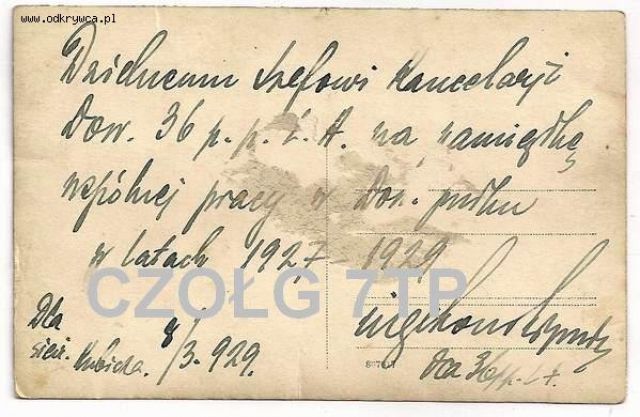 www.odkrywca.pl
Dzielnemu szefowi Kancelarji
Dow. 36 p.p. L. A. na pamiątkę
wspólnej pracy w Dow. pułku
w latach 1927 - 1929
CZOŁG 7TP
Dla
sierż. Kubicza. 8/3. 929.
Dca 36 p.p. L. A.